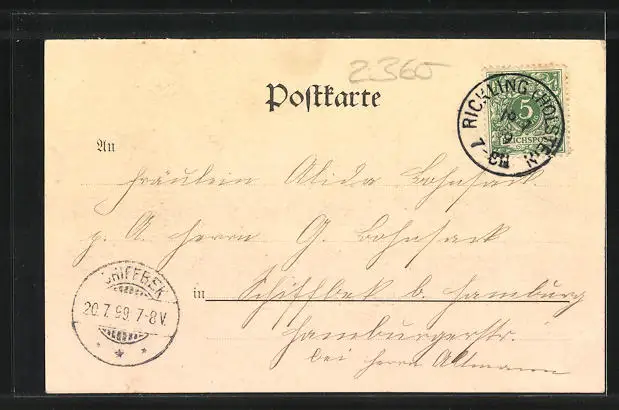 2360
Postkarte
RICKLING (HOLSTEIN)
7-8N
5
REICHSPOST
An
Fräulein Alida Bohnsack.
p. A. Herrn G. Bohnsack
SCHIFFBEK
20.7.99.7-8V.
in Schiffbek b. Hamburg
Hamburgerstr.
bei Herrn Altmann